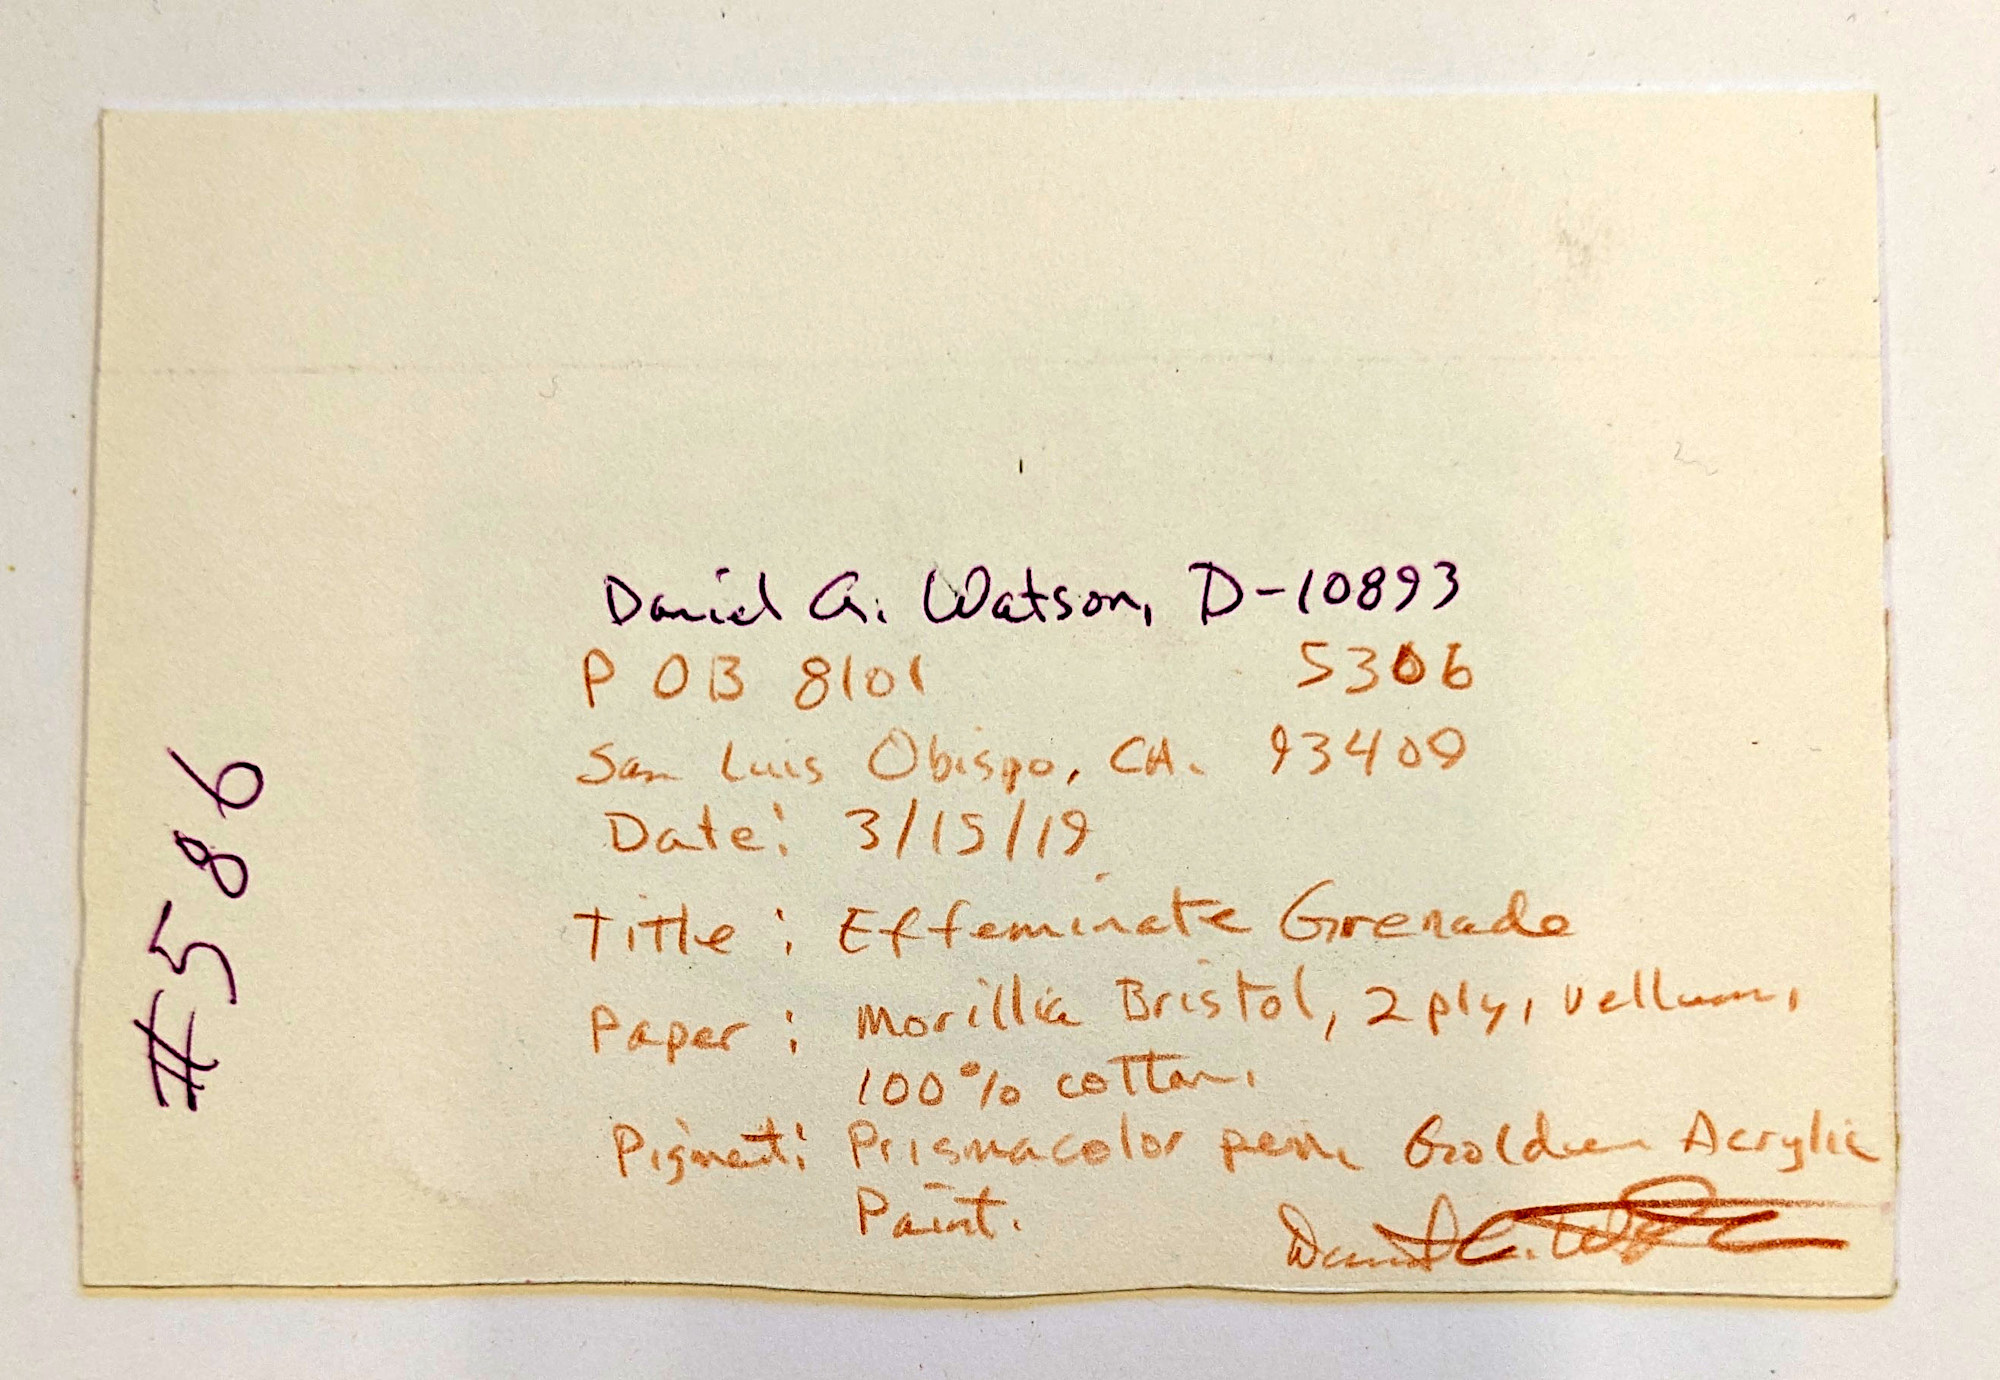 Daniel A. Watson, D-10893
P O B 8101 5306
San Luis Obispo, CA. 93409
Date: 3/15/19
Title: Effeminate Grenade
Paper: Morilla Bristol, 2 ply, vellum,
100% cotton.
Pigment: Prismacolor pen, Golden Acrylic
Paint.
Daniel A. Watson
#586